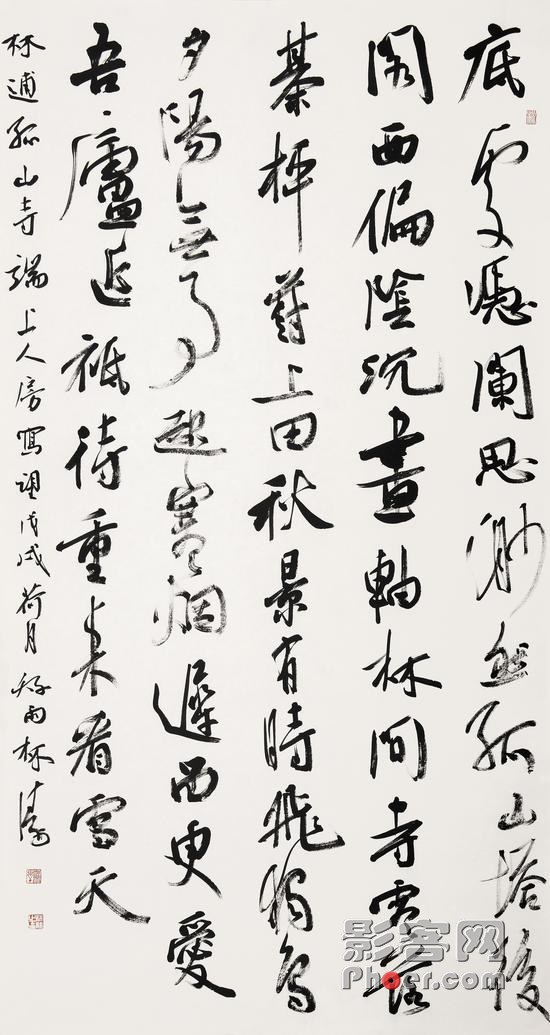 底處憑闌思眇然孤山塔後
閣西偏陰沉畫軸林間寺零落
棊枰葑上田秋景有時飛獨鳥
夕陽無事起寒烟遲留更愛
吾廬近祗待重来看雪天
林逋孤山寺端上人房寫望戊戌荷月好雨林濤
影客网
Phoer.com